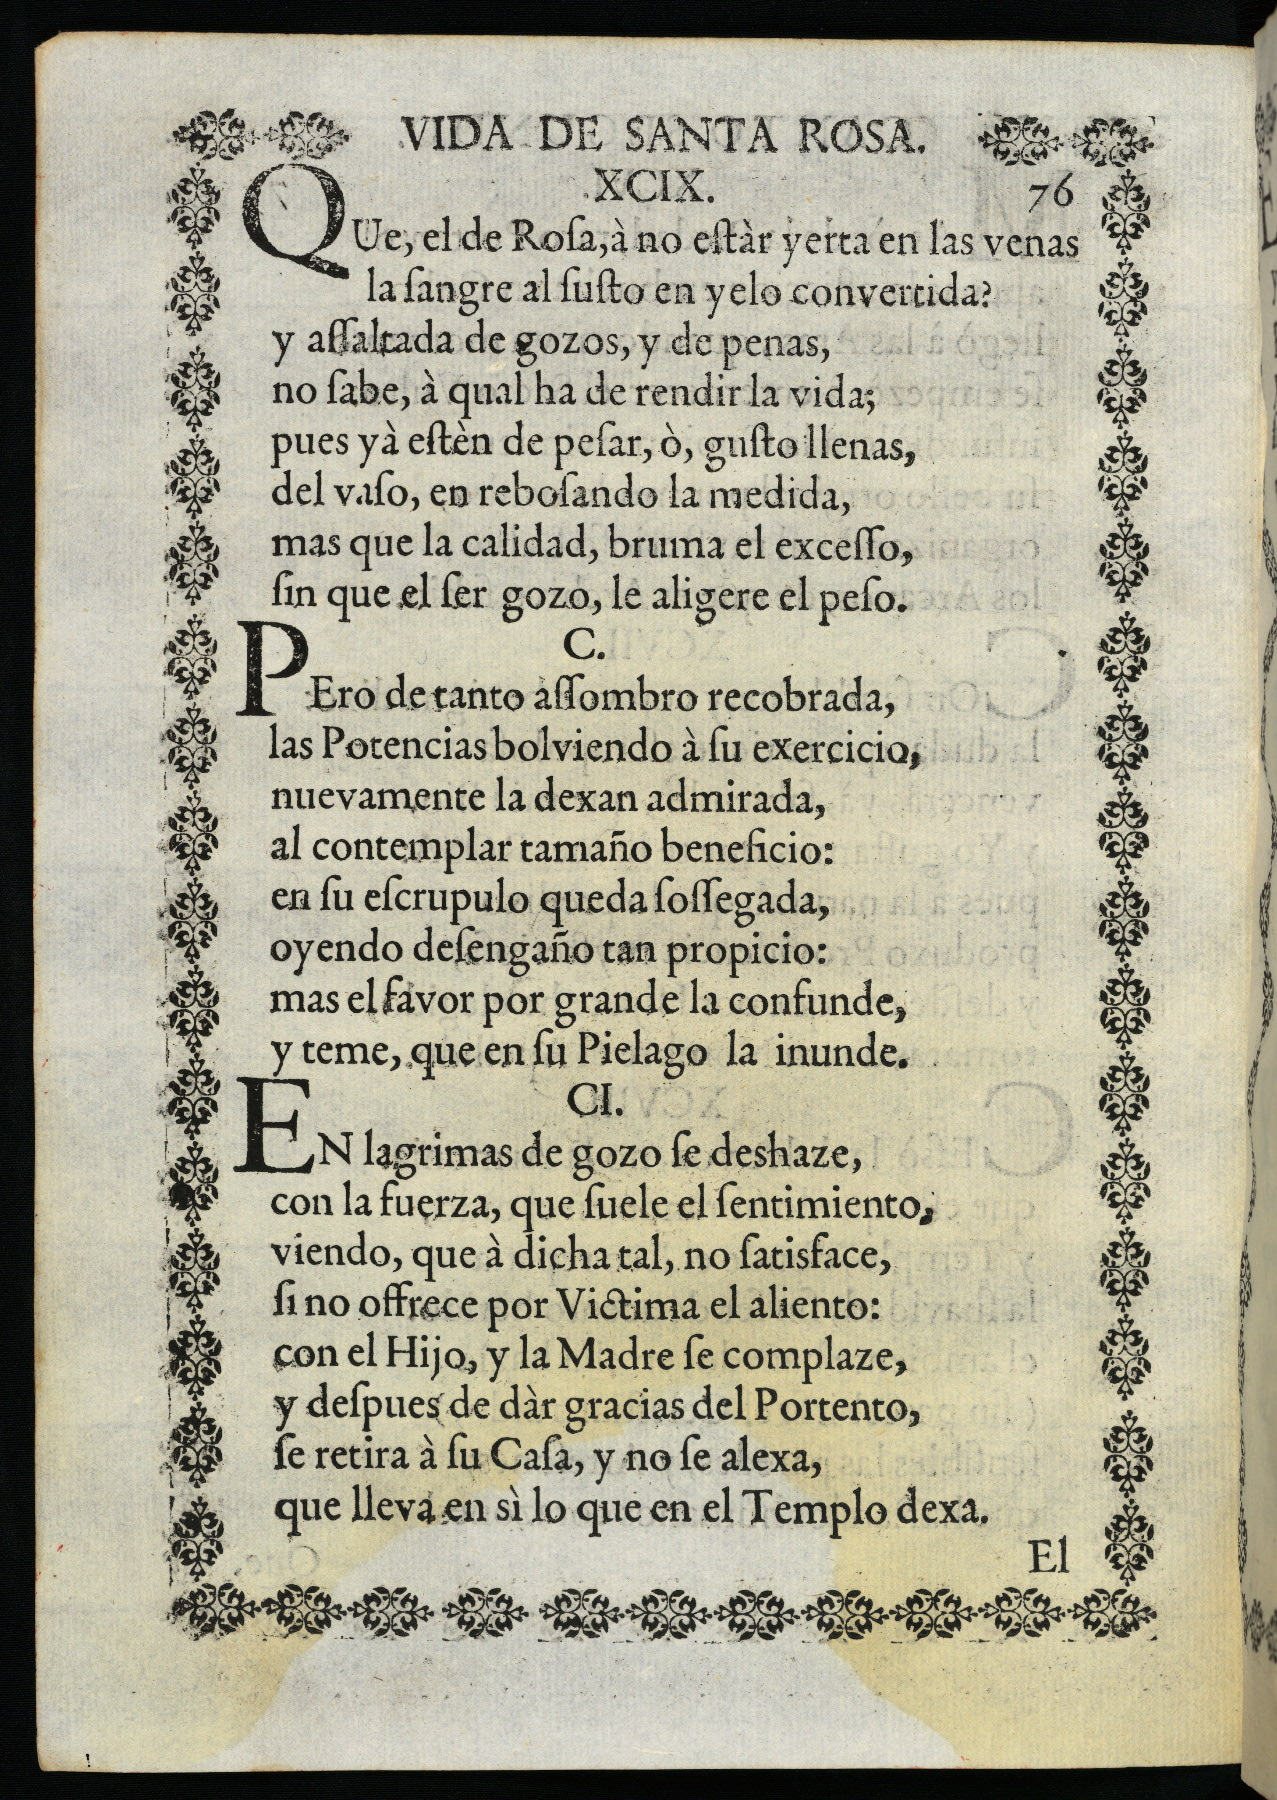 VIDA DE SANTA ROSA.
XCIX. 76
QUe, el de Roſa, à no eſtàr yerta en las venas
la ſangre al ſuſto en yelo convertida?
y aſſaltada de gozos, y de penas,
no ſabe, à qual ha de rendir la vida;
pues yà eſtèn de peſar, ò, guſto llenas,
del vaſo, en reboſando la medida,
mas que la calidad, bruma el exceſſo,
ſin que el ſer gozo, le aligere el peſo.
C.
PEro de tanto aſſombro recobrada,
las Potencias bolviendo à ſu exercicio,
nuevamente la dexan admirada,
al contemplar tamaño beneficio:
en ſu eſcrupulo queda ſoſſegada,
oyendo deſengaño tan propicio:
mas el favor por grande la confunde,
y teme, que en ſu Pielago la inunde.
CI.
EN lagrimas de gozo ſe deshaze,
con la fuerza, que ſuele el ſentimiento,
viendo, que à dicha tal, no ſatisface,
ſi no offrece por Victima el aliento:
con el Hijo, y la Madre ſe complaze,
y deſpues de dàr gracias del Portento,
ſe retira à ſu Caſa, y no ſe alexa,
que lleva en sì lo que en el Templo dexa.
El